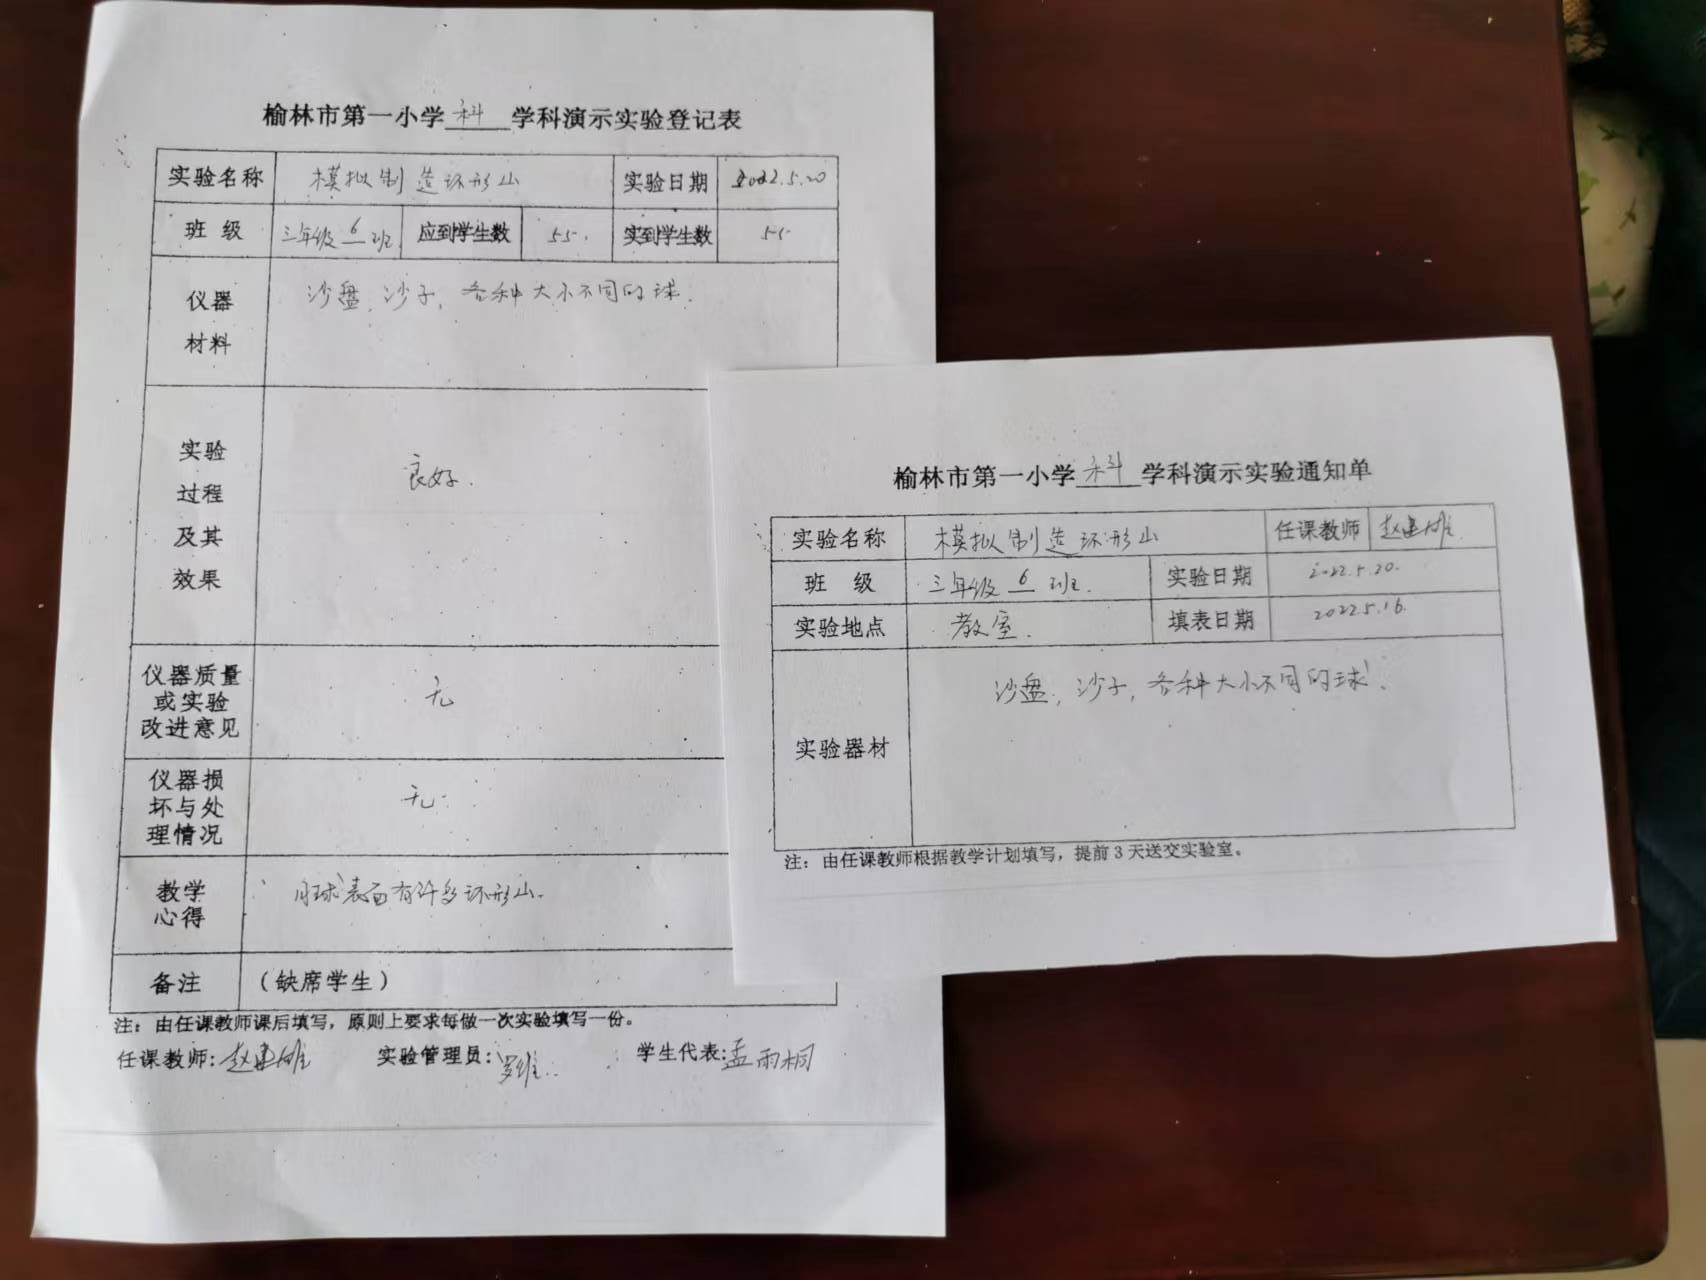 榆林市第一小学 科 学科演示实验登记表
实验名称 模拟制造环形山 实验日期 2022.5.20
班 级 三年级 6 班 应到学生数 55. 实到学生数 55
仪器 沙盘、沙子, 各种大小不同的球.
材料
实验
过程 良好.
及其
效果
仪器质量
或实验 无
改进意见
仪器损
坏与处 无.
理情况
教学 月球表面有许多环形山.
心得
备注 (缺席学生)
注：由任课教师课后填写，原则上要求每做一次实验填写一份。
任课教师: 赵建雄 实验管理员: 罗维.. 学生代表: 孟雨桐
榆林市第一小学 科 学科演示实验通知单
实验名称 模拟制造环形山 任课教师 赵建雄.
班 级 三年级 6 班. 实验日期 2022.5.20.
实验地点 教室. 填表日期 2022.5.16.
沙盘, 沙子, 各种大小不同的球.
实验器材
注：由任课教师根据教学计划填写，提前 3 天送交实验室。